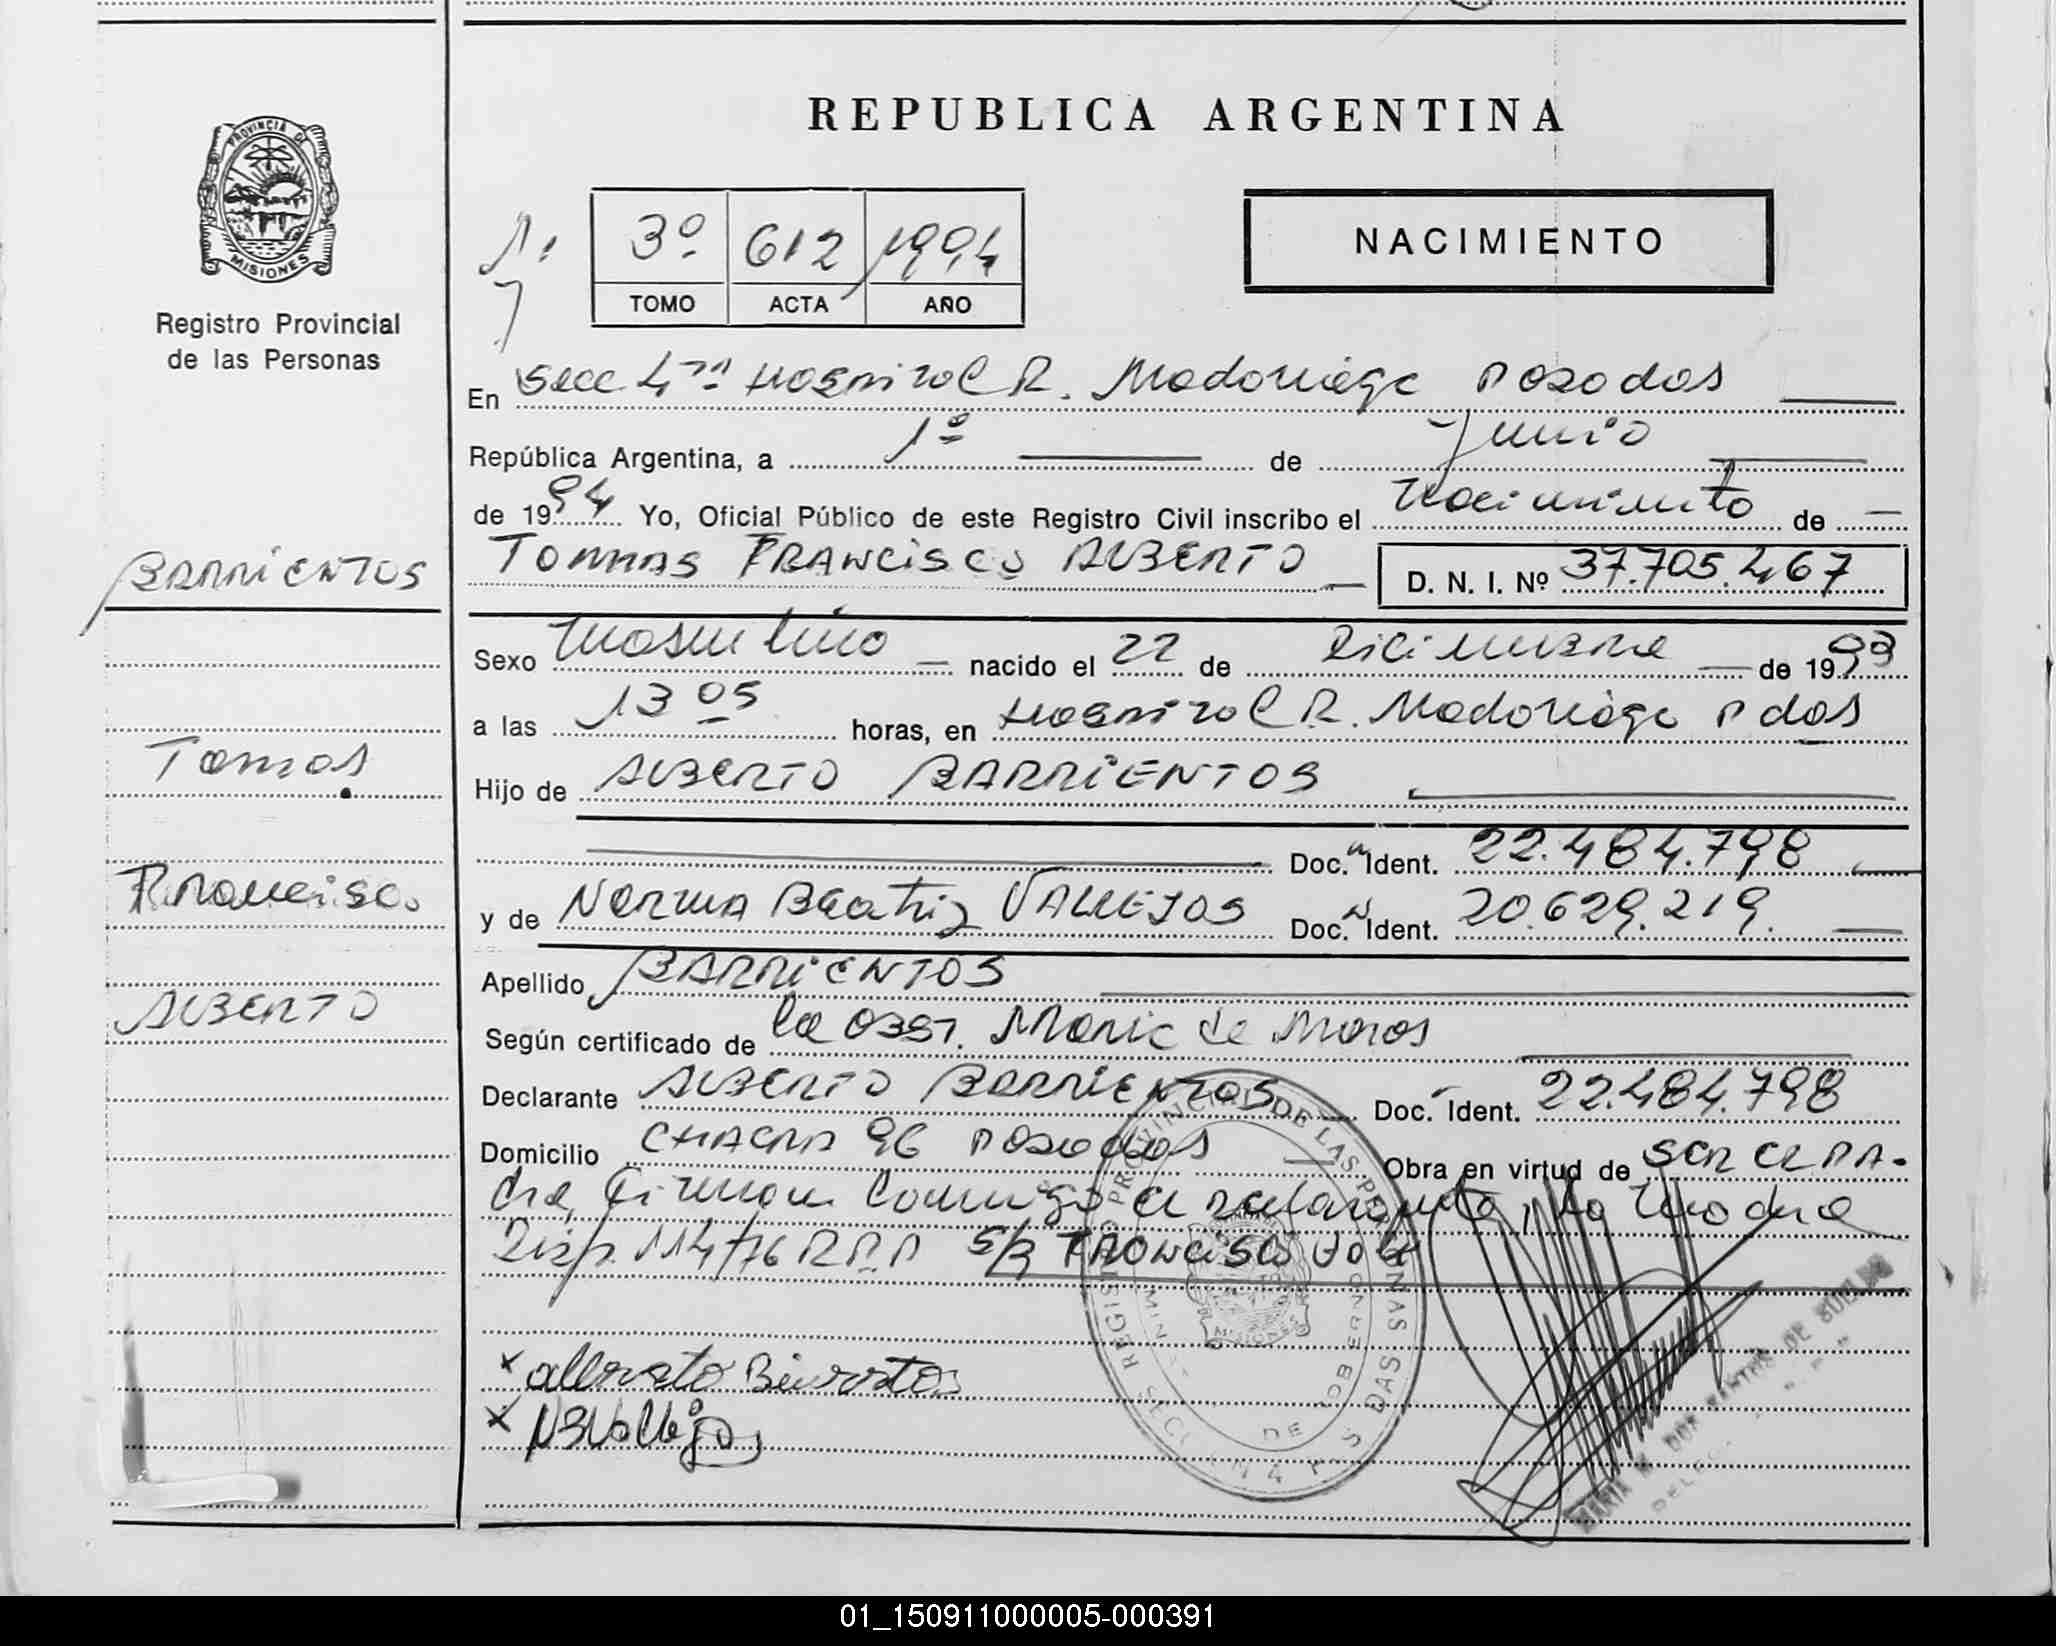 REPUBLICA ARGENTINA
PROVINCIA DE
MISIONES
Registro Provincial
de las Personas
3º 612 1994
TOMO ACTA AÑO
NACIMIENTO
En Secc 4ta Hospital R. Madariaga Posadas
República Argentina, a 1º de Junio
de 1994 Yo, Oficial Público de este Registro Civil inscribo el Nacimiento de
TOMAS FRANCISCO ALBERTO D. N. I. Nº 37.705.467
BARRIENTOS
Sexo Masculino nacido el 22 de Diciembre de 1993
a las 13 05 horas, en Hospital R. Madariaga Pdas
Tomas
Hijo de ALBERTO BARRIENTOS
Doc. Ident. 22.484.798
Francisco
y de Norma Beatriz VALLEJOS Doc. Ident. 20.629.219.
Apellido BARRIENTOS
ALBERTO
Según certificado de la Obst. Maria de
Declarante ALBERTO BARRIENTOS Doc. Ident. 22.484.798
Domicilio CHACRA 96 Posadas Obra en virtud de SER EL PA-
dre, Firman Conmigo el declarante, la Madre
Disp. 114/76 R.P.P S/R FRANCISCO Vale
x alberto
x NBVallejos
01_150911000005-000391